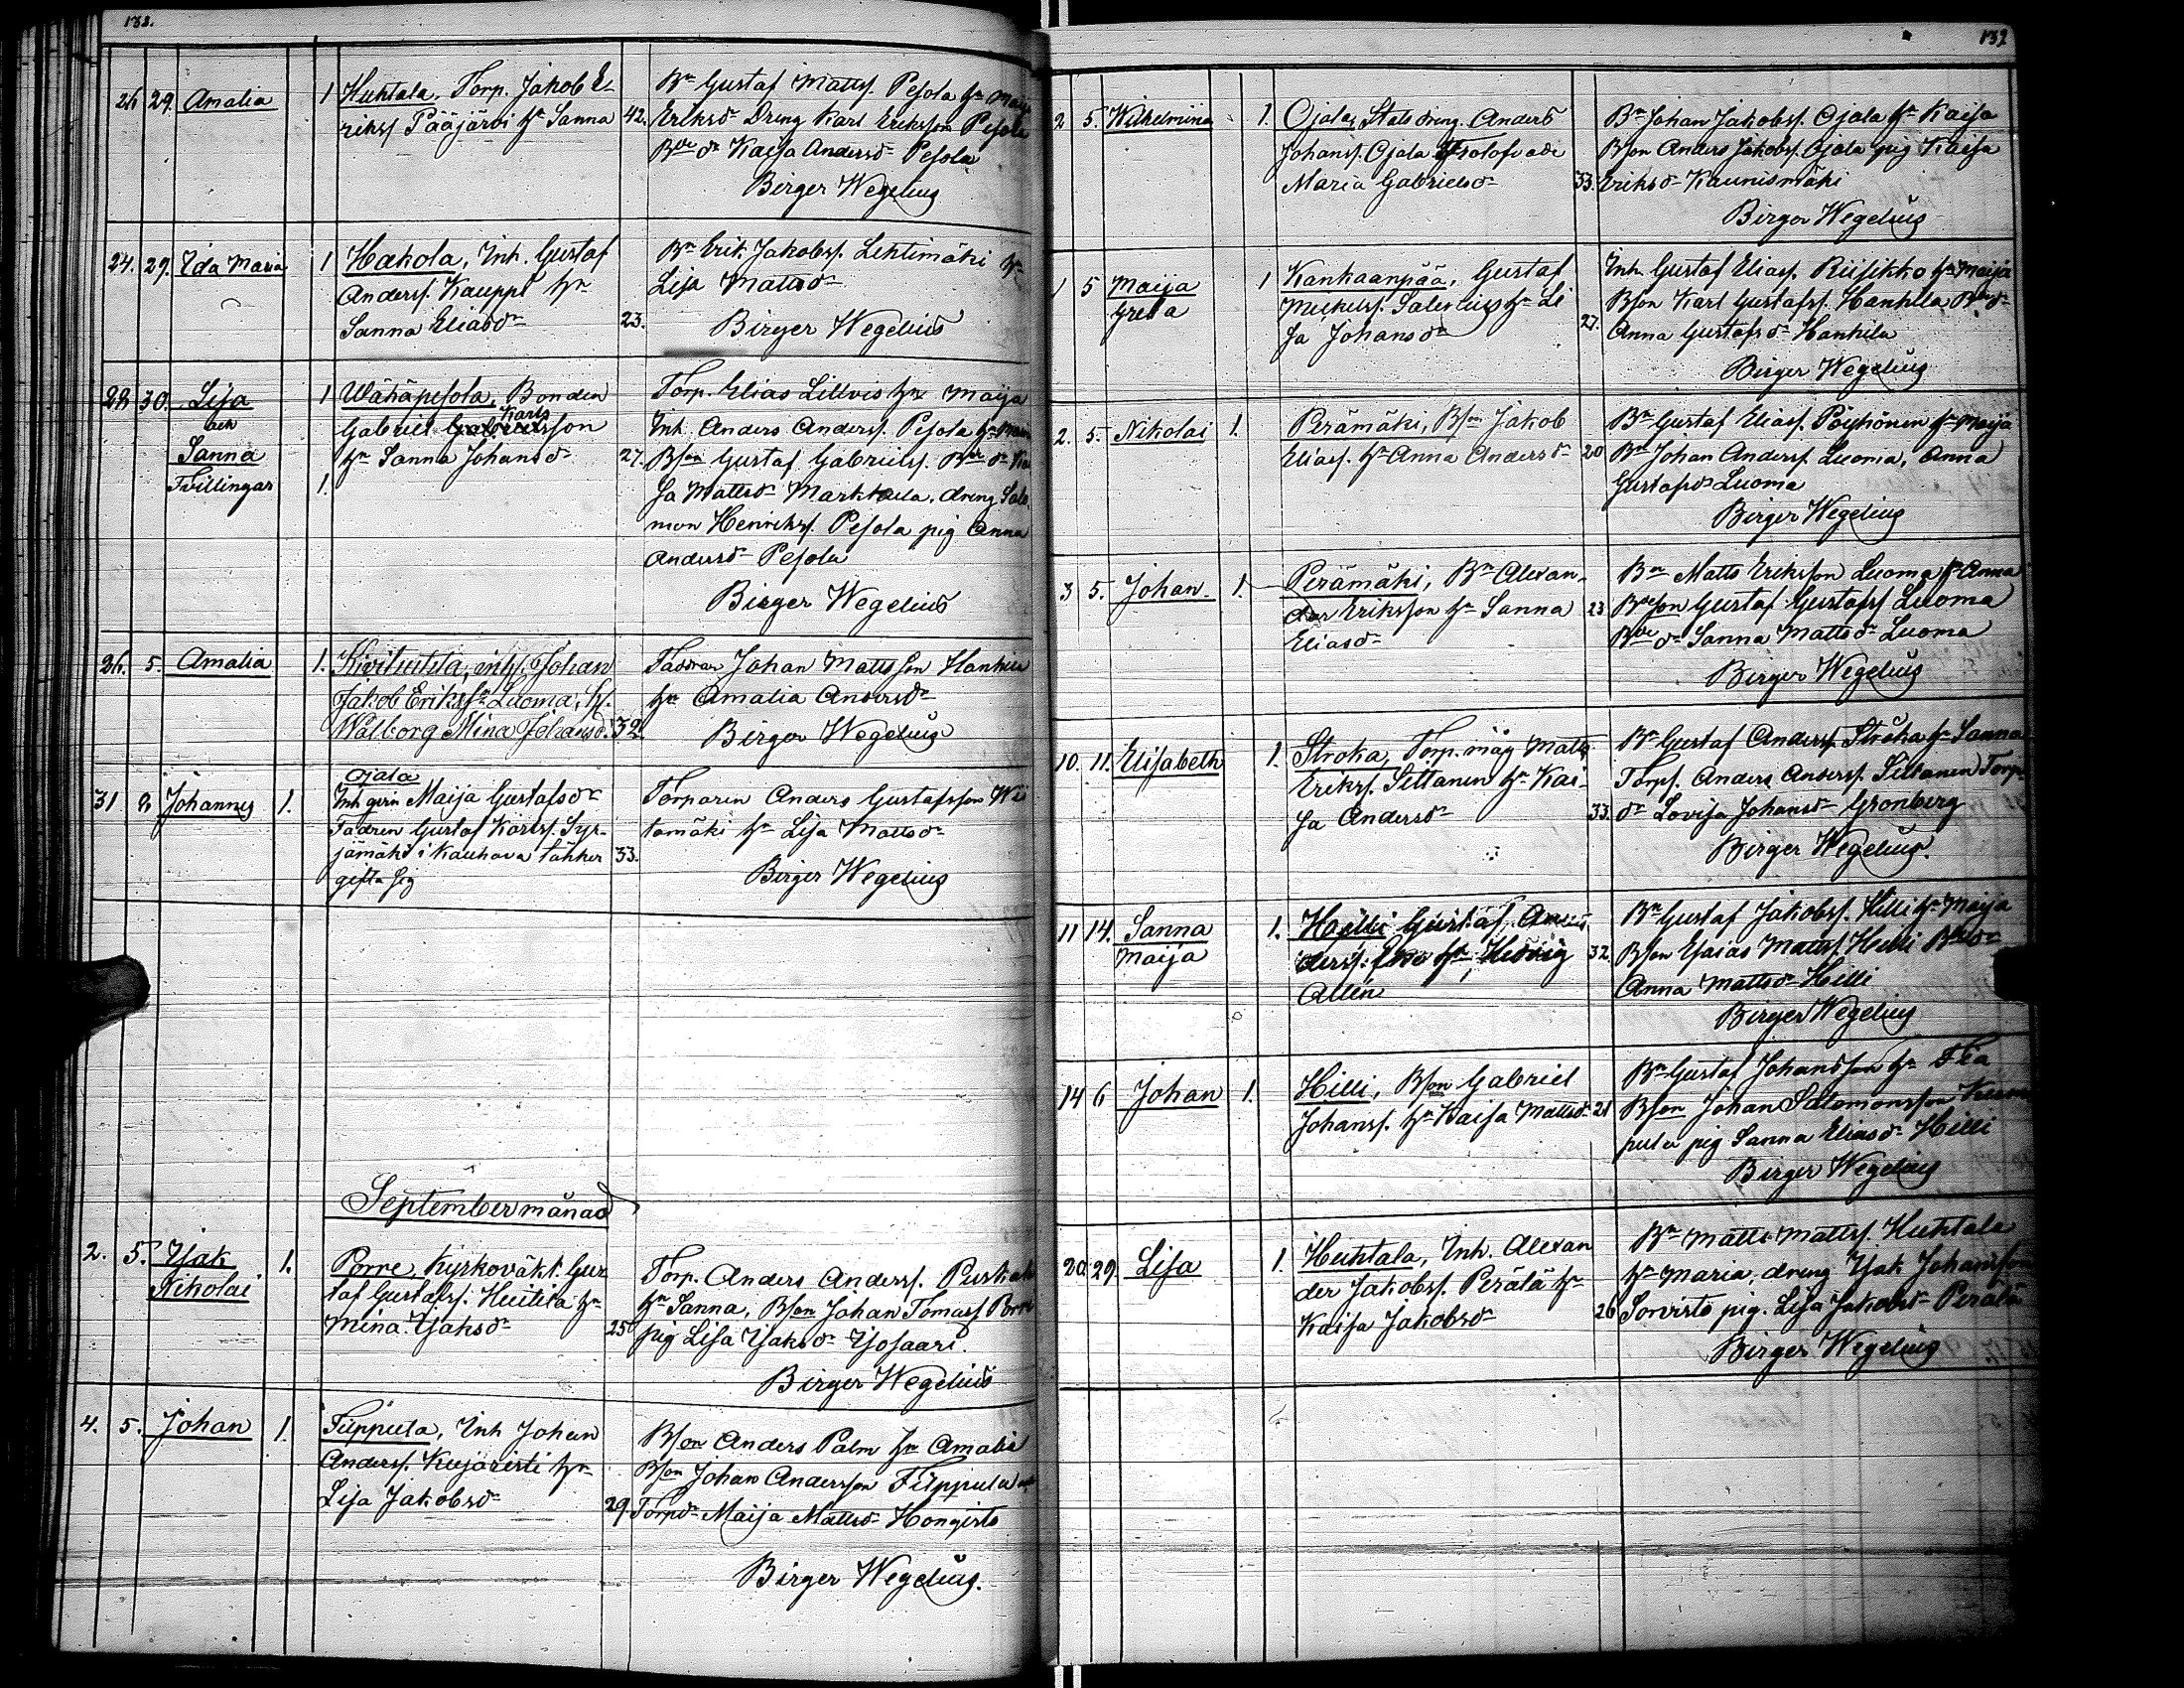 132.
26 29. Amalia 1 Huhtala, Torp. Jakob E-
riksf Pääjärvi hn Sanna 42.
Bn Gustaf Mattsf. Pesola hn Maija
Eriksdr Dreng Karl Eriksson Pesola
Bde dr Kaisa Andersdr Pesola
Birger Wegelius
24. 29. Ida Maria 1 Hakola, Inh. Gustaf
Andersf. Kauppi hn
Sanna Eliasdr 23.
Bn Erik Jakobsf. Lehtimäki hn
Lisa Mattsdr
Birger Wegelius
28 30. Lisa 1 Wähäpesola, Bonden
och
Karls
Gabriel Gabrielsson
Sanna hn Sanna Johansdr 27.
Tvillingar 1.
Torp. Elias Lillvis hn Maija
Inh. Anders Andersf. Pesola hn
Bson Gustaf Gabrielsf. Bde dr Kai
sa Mattsdr Markkula, dreng Salo
mon Henriksf. Pesola pig Anna
Andersdr Pesola
Birger Wegelius
26. 5. Amalia 1. Kivihuhta, inhs. Johan
Jakob Erikssn Luoma, h.
Walborg Mina Johansd. 32.
Faddrar Johan Mattsson Hanhila
hn Amalia Andersdr
Birger Wegelius
31 2 Johannes 1. Ojala
Inh gvin Maija Gustafsdr
Fadren Gustaf Karlsf. Syr-
jämäki i Kauhava tänker 33.
gifta sig
Torparen Anders Gustafsson Wii
tamäki hn Lisa Mattsdr
Birger Wegelius
September månad
2. 5. Isak 1. Porre, Kyrkoväkt. Gus
Nikolai taf Gustafsf. Huhtla hn
Mina Isaksdr 25
Torp. Anders Andersf. Puskala
hn Sanna, Bson Johan Tomasf Porre
pig Lisa Isaksdr Isosaari.
Birger Wegelius
4. 5. Johan 1. Filppula, Inh Johan
Andersf. Kujaristi hn
Lisa Jakobsdr 29.
Bson Anders Palm hn Amalia
Bson Johan Andersson Filppula
Torpdr Maija Mattsdr Hongisto
Birger Wegelius.
2 5. Wilhelmina 1. Ojala, Statsdreng Anders
Johansf. Ojala
Maria Gabrielsdr 33.
Bn Johan Jakobsf. Ojala hn Kaisa
Bson Anders Jakobsf. Ojala pig Kaisa
Eriksdr Kaunismäki
Birger Wegelius
1 5 Maija 1 Kankaanpää, Gustaf
Greta Mickelsf. Salenius hn Li
sa Johansdr 27.
Inh. Gustaf Eliasf. Riisikko hn Maija
Bson Karl Gustafsf. Hanhila Bde dr
Anna Gustafsdr Hanhila
Birger Wegelius
2. 5. Nikolai 1. Perämäki, Bson Jakob
Eliasf. hn Anna Andersdr 20
Bn Gustaf Eliasf. Pöyhönen hn Maija
Bn Johan Andersf. Luoma, Anna
Gustafsdr Luoma
Birger Wegelius
3 5. Johan 1. Perämäki, Bn Alexan-
der Eriksson hn Sanna 23
Eliasdr
Bn Matts Eriksson Luoma hn Anna
Bdeson Gustaf Gustafsf Luoma
Bde dr Sanna Mattsdr Luoma
Birger Wegelius
10. 11. Elisabeth 1. Stroka, Torp. måg Matts
Eriksf. Siltanen hn Kai-
sa Andersdr 33.
Bn Gustaf Andersf. Stroka hn Sanna
Torps. Anders Andersf. Siltanen Torp.
dr Lovisa Johansdr Grönberg
Birger Wegelius.
11 14. Sanna 1. Hilli Gustaf An
Maija dersf. hn Hedvig 32
Allén
Bn Gustaf Jakobsf. Hilli hn Maija
Bson Esaias Mattsf. Hilli Bde dr
Anna Mattsdr Hilli
Birger Wegelius
14 6 Johan 1. Hilli, Bson Gabriel
Johansf. hn Kaisa Mattsdr 21
Bn Gustaf Johansson hn Fia
Bson Johan Salomonsson
pula pig Sanna Eliasdr Hilli
Birger Wegelius
20. 29. Lisa 1. Huhtala, Inh. Alexan
der Jakobsf. Perälä hn
Kaisa Jakobsdr 26
Bn Matts Mattsf. Huhtala
hn Maria, dreng Isak Johansson
Sorvisto pig. Lisa Jakobsdr Perälä
Birger Wegelius